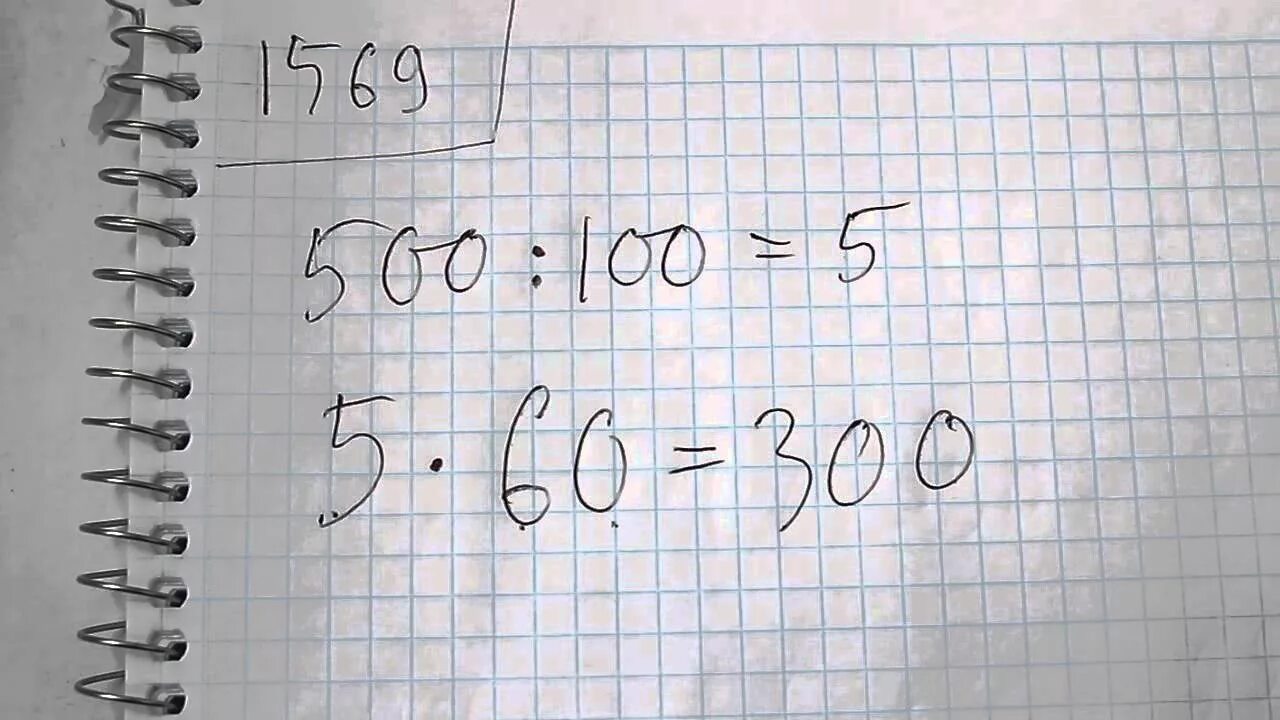 1569
500 : 100 = 5
5 · 60 = 300